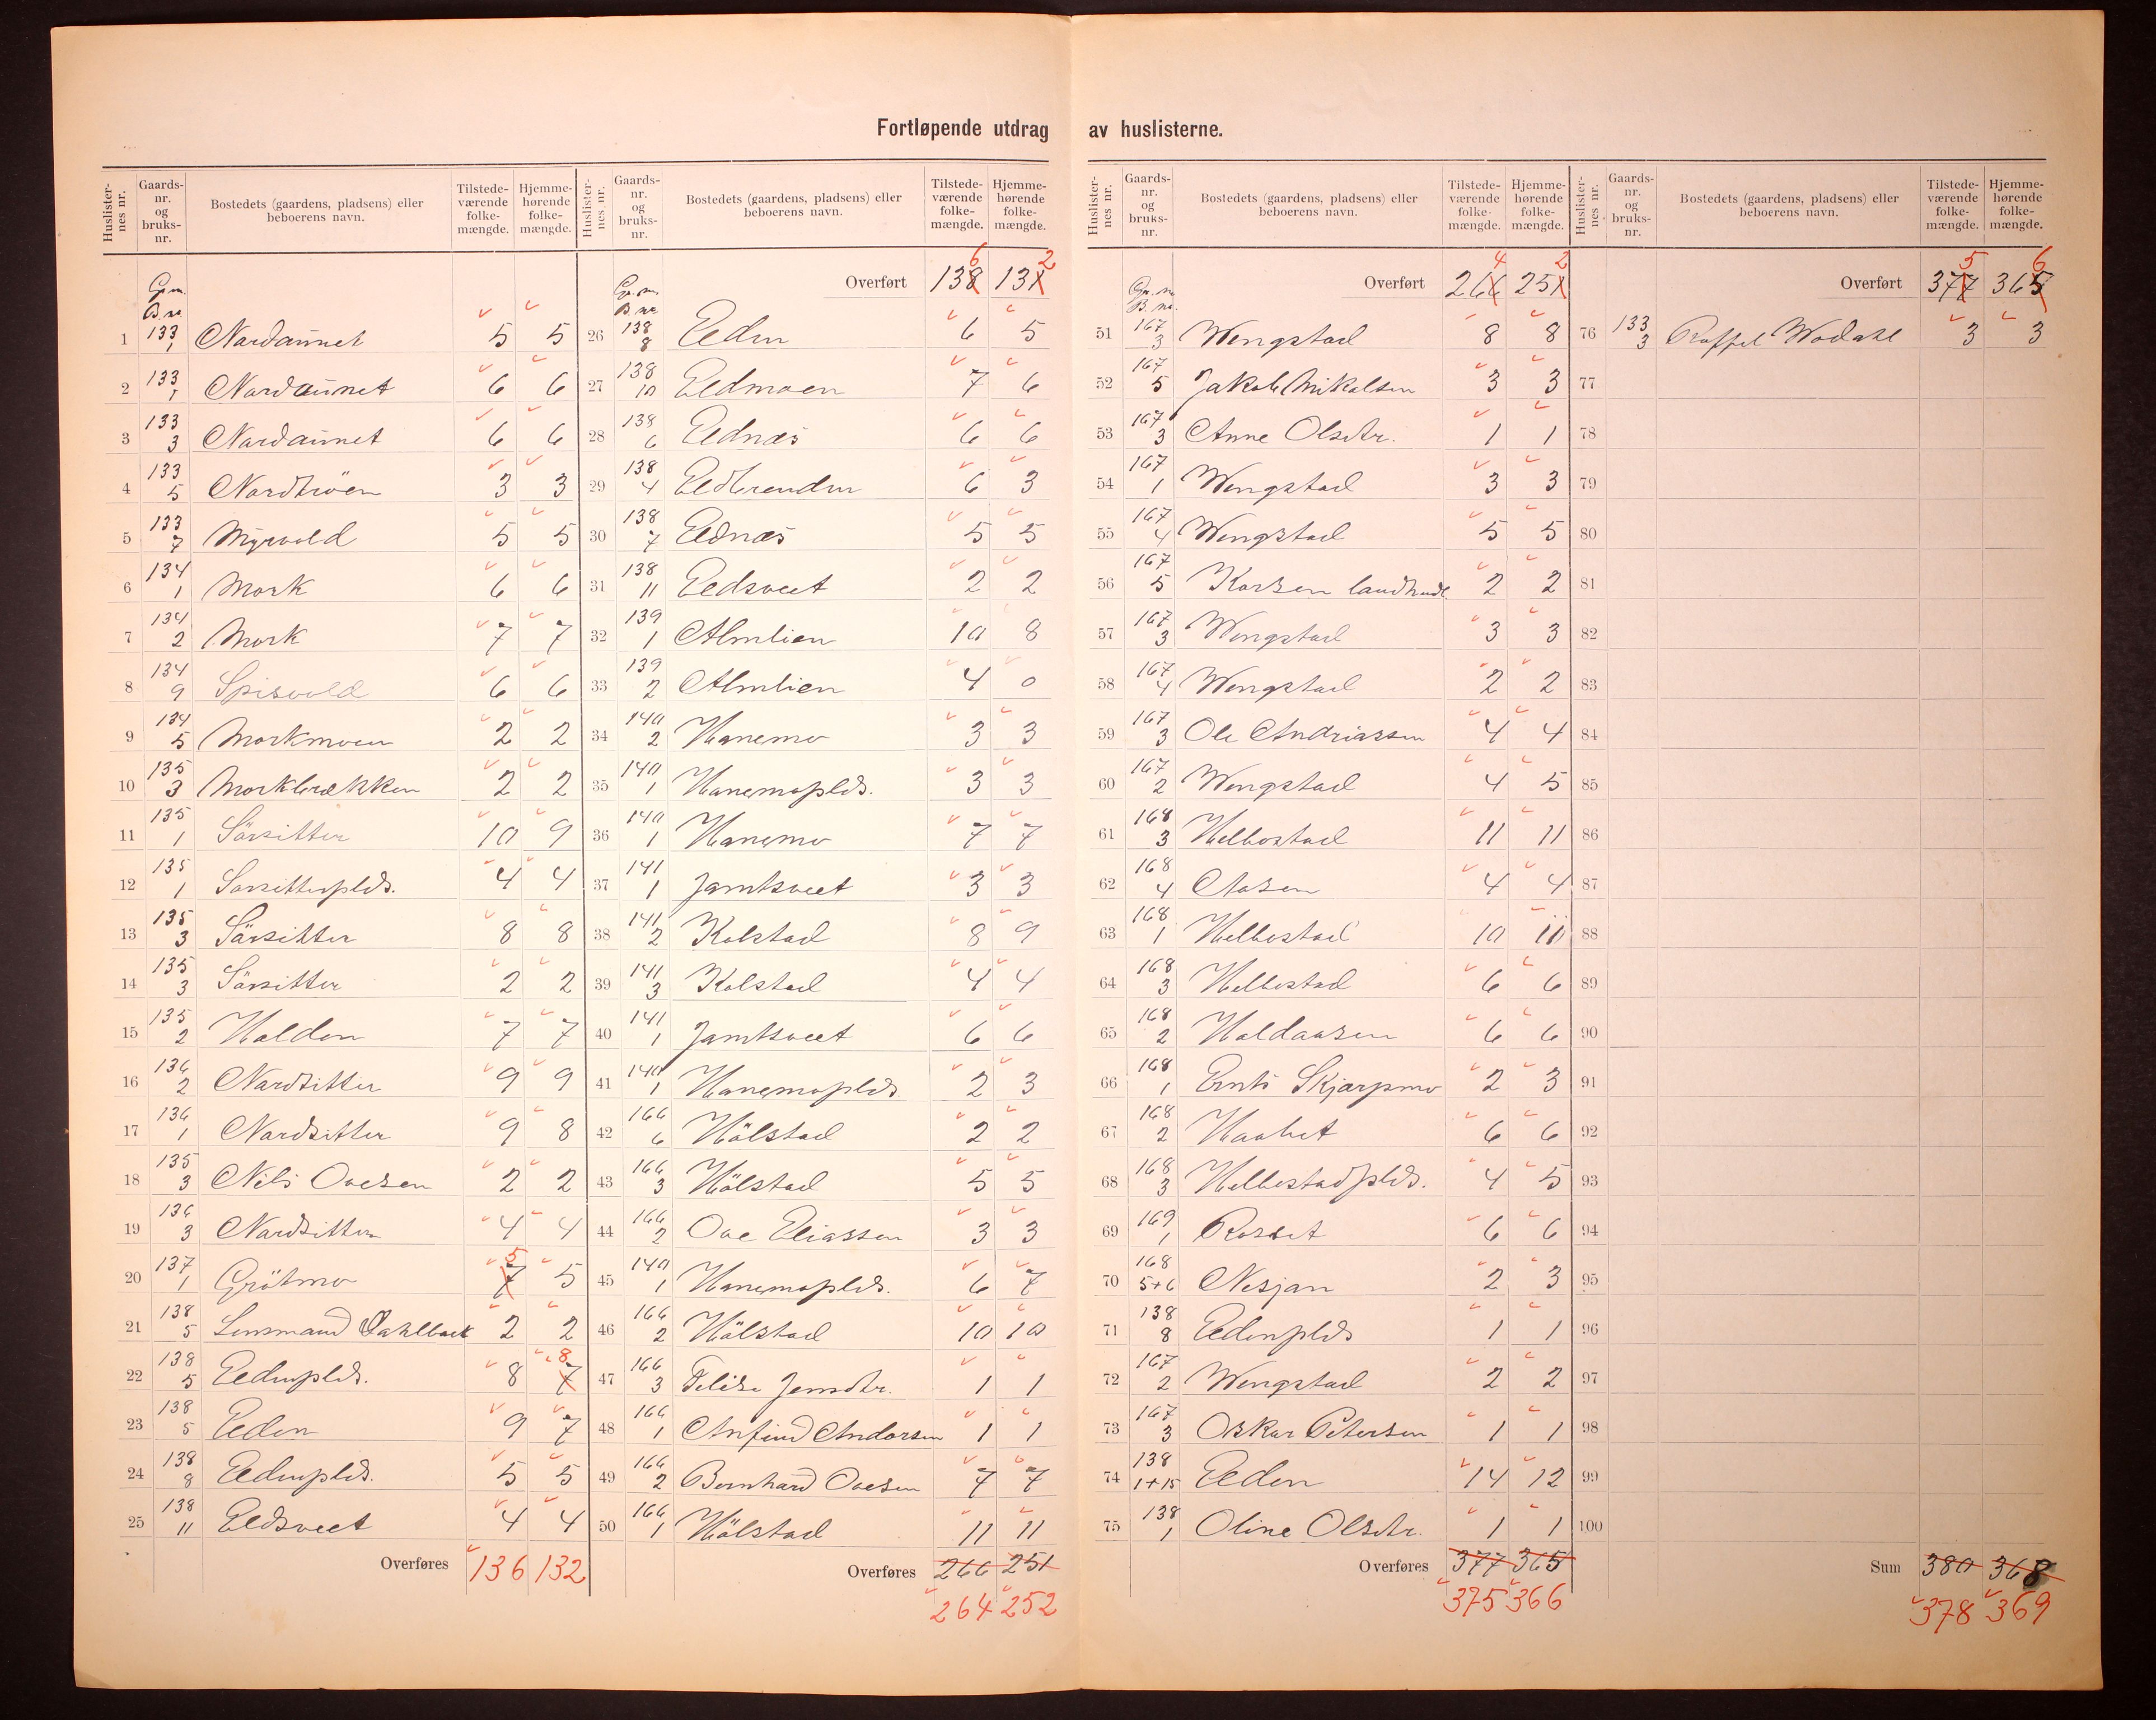 Fortløpende utdrag av huslisterne.
Huslisternes nr. Gaards-nr. og bruks-nr. Bostedets (gaardens, pladsens) eller beboerens navn. Tilstedeværende folkemængde. Hjemmehørende folkemængde.
Gr. nr. B. nr.
1 133 1 Nordaunet 5 5
2 133 1 Nordaunet 6 6
3 133 3 Nordaunet 6 6
4 133 5 Nordtrøen 3 3
5 133 7 Myrvold 5 5
6 134 1 Mork 6 6
7 134 2 Mork 7 7
8 134 9 Spisvold 6 6
9 134 5 Morkmoen 2 2
10 135 3 Morkbrækken 2 2
11 135 1 Sörsitter 10 9
12 135 1 Sörsitterplds. 4 4
13 135 3 Sörsitter 8 8
14 135 3 Sörsitter 2 2
15 135 2 Halden 7 7
16 136 2 Nordsitter 9 9
17 136 1 Nordsitter 9 8
18 135 3 Nils Ovesen 2 2
19 136 3 Nordsitter 4 4
20 137 1 Grötmo 7 5 5
21 138 5 Lensmand Dahlback 2 2
22 138 5 Eedenplds. 8 7 8
23 138 5 Eeden 9 7
24 138 8 Eedenplds. 5 5
25 138 11 Eedsveet 4 4
Overføres 136 132
Huslisternes nr. Gaards-nr. og bruks-nr. Bostedets (gaardens, pladsens) eller beboerens navn. Tilstedeværende folkemængde. Hjemmehørende folkemængde.
Gr. nr. B. nr.
Overført 138 6 131 2
26 138 8 Eeden 6 5
27 138 10 Eedmoen 7 6
28 138 6 Eednæs 6 6
29 138 4 Eedtrenden 6 3
30 138 7 Eednæs 5 5
31 138 11 Eedsveet 2 2
32 139 1 Almlien 10 8
33 139 2 Almlien 4 0
34 140 2 Hanemo 3 3
35 140 1 Hanemoplds. 3 3
36 140 1 Hanemo 7 7
37 141 1 Jamtsveet 3 3
38 141 2 Kolstad 8 9
39 141 3 Kolstad 4 4
40 141 1 Jamtsveet 6 6
41 140 1 Hanemoplds. 2 3
42 166 6 Hölstad 2 2
43 166 3 Hölstad 5 5
44 166 2 Ove Eliassen 3 3
45 140 1 Hanemoplds. 6 7
46 166 2 Hölstad 10 10
47 166 3 Felise Jensdtr. 1 1
48 166 1 Anfind Andorsen 1 1
49 166 2 Bernhard Ovesen 7 7
50 166 1 Hölstad 11 11
Overføres 266 251
264 252
Huslisternes nr. Gaards-nr. og bruks-nr. Bostedets (gaardens, pladsens) eller beboerens navn. Tilstedeværende folkemængde. Hjemmehørende folkemængde.
Gr. nr. B. nr.
Overført 266 4 251 2
51 167 3 Wengstad 8 8
52 167 5 Jakob Mikalsen 3 3
53 167 3 Anne Olsdtr. 1 1
54 167 1 Wengstad 3 3
55 167 4 Wengstad 5 5
56 167 5 Korsen landhndl. 2 2
57 167 3 Wengstad 3 3
58 167 4 Wengstad 2 2
59 167 3 Ole Andriassen 4 4
60 167 2 Wengstad 4 5
61 168 3 Helbostad 11 11
62 168 4 Aasen 4 4
63 168 1 Helbostad 10 11
64 168 3 Helbostad 6 6
65 168 2 Haldaasen 6 6
66 168 1 Ernts Skjærpmo 2 3
67 168 2 Haabet 6 6
68 168 3 Helbostadplds. 4 5
69 169 1 Rosset 6 6
70 168 5+6 Nesjan 2 3
71 138 8 Eedenplds 1 1
72 167 2 Wengstad 2 2
73 167 3 Oskar Petersen 1 1
74 138 1+15 Eeden 14 12
75 138 1 Oline Olsdtr. 1 1
Overføres 377 365
375 366
Huslisternes nr. Gaards-nr. og bruks-nr. Bostedets (gaardens, pladsens) eller beboerens navn. Tilstedeværende folkemængde. Hjemmehørende folkemængde.
Overført 377 5 365 6
76 133 3 Roffel Wodahl 3 3
77
78
79
80
81
82
83
84
85
86
87
88
89
90
91
92
93
94
95
96
97
98
99
100
Sum 380 368
378 369